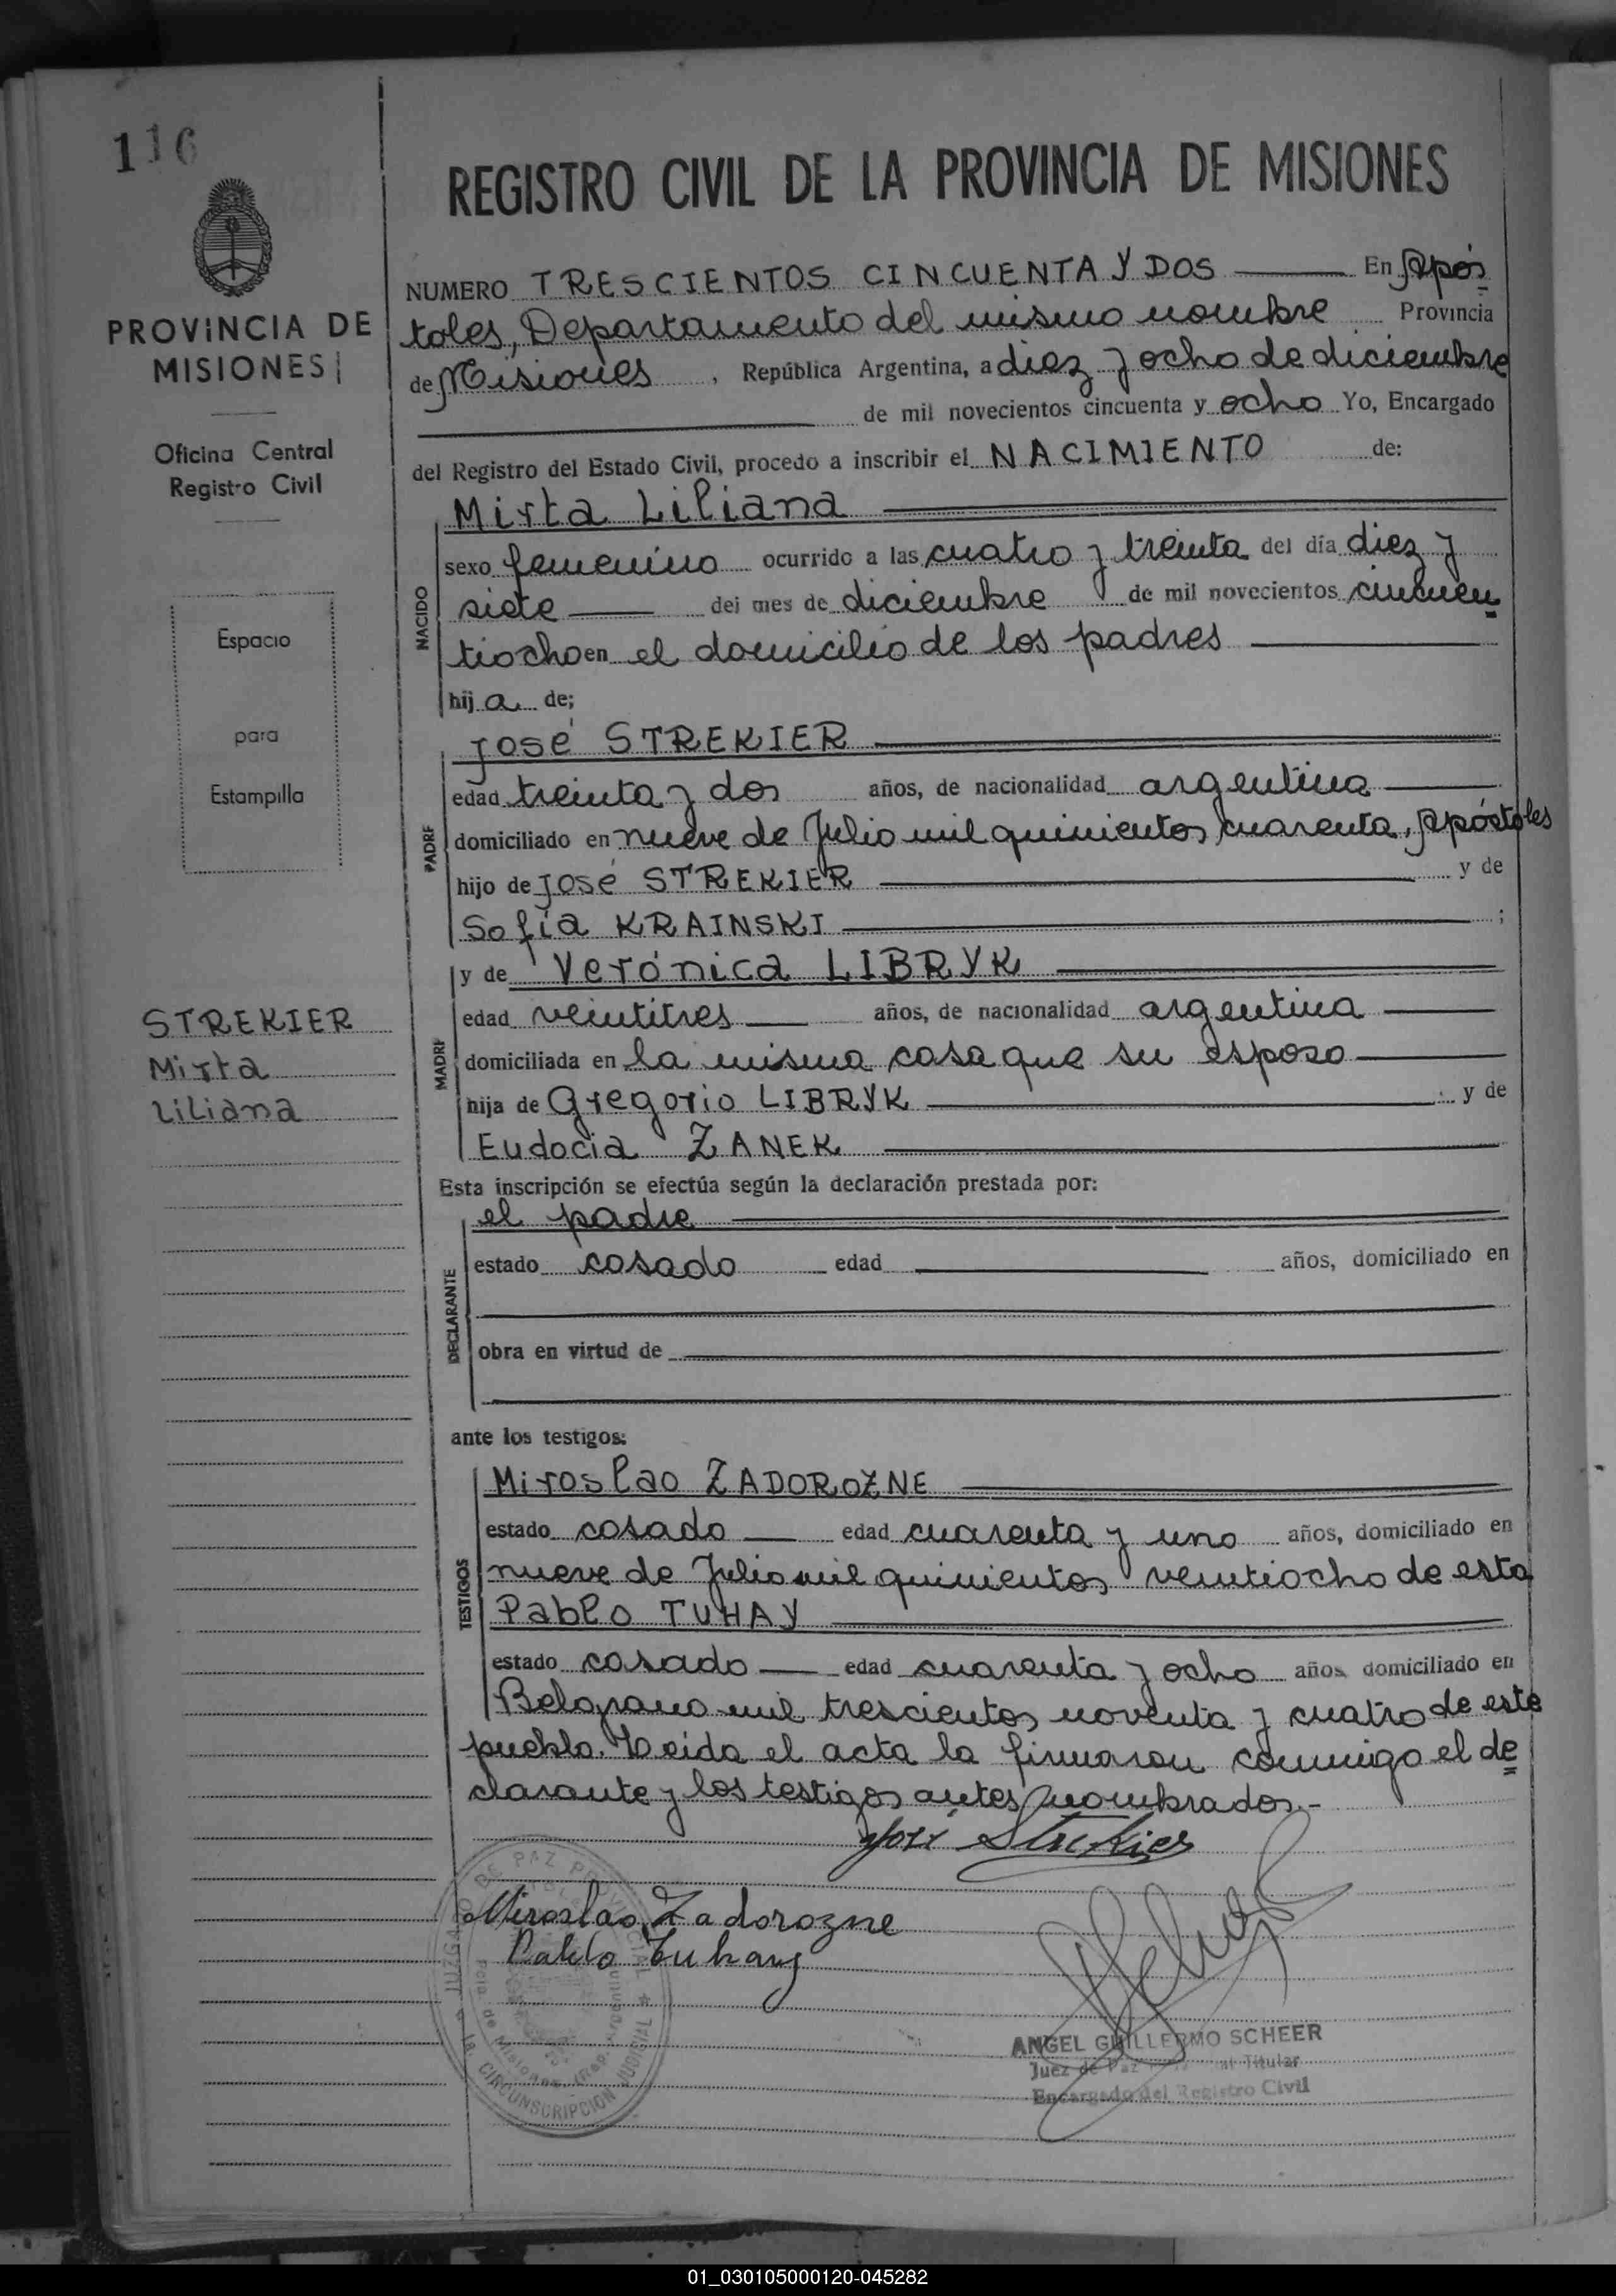 116
REGISTRO CIVIL DE LA PROVINCIA DE MISIONES
PROVINCIA DE
MISIONES
Oficina Central
Registro Civil
Espacio
para
Estampilla
STREKIER
Mirta
Liliana
NUMERO TRESCIENTOS CINCUENTA Y DOS En Após
toles, Departamento del mismo nombre Provincia
de Misiones, República Argentina, a diez y ocho de diciembre
de mil novecientos cincuenta y ocho Yo, Encargado
del Registro del Estado Civil, procedo a inscribir el NACIMIENTO de:
NACIDO
Mirta Liliana
sexo femenino ocurrido a las cuatro y treinta del día diez y
siete del mes de diciembre de mil novecientos cincuen
tiocho en el domicilio de los padres
hija de;
PADRE
José STREKIER
edad treinta y dos años, de nacionalidad argentina
domiciliado en nueve de Julio mil quinientos cuarenta, Apóstoles
hijo de José STREKIER y de
Sofía KRAINSKI ;
MADRE
y de Verónica LIBRYK
edad veintitres años, de nacionalidad argentina
domiciliada en la misma casa que su esposo
hija de Gregorio LIBRYK y de
Eudocia ZANEK
Esta inscripción se efectúa según la declaración prestada por:
DECLARANTE
el padre
estado casado edad años, domiciliado en
obra en virtud de
ante los testigos:
TESTIGOS
Miroslao ZADOROZNE
estado casado edad cuarenta y uno años, domiciliado en
nueve de Julio mil quinientos veintiocho de esta
Pablo TUHAY
estado casado edad cuarenta y ocho años domiciliado en
Belgrano mil trescientos noventa y cuatro de este
pueblo. Leida el acta la firmaron conmigo el de
clarante y los testigos antes nombrados.-
José Strekier
Miroslao Zadorozne
Pablo Tuhay
DE PAZ PROVINCIAL
CIRCUNSCRIPCION JUDICIAL
ANGEL GUILLERMO SCHEER
Juez de Paz Titular
Encargado del Registro Civil
01_030105000120-045282